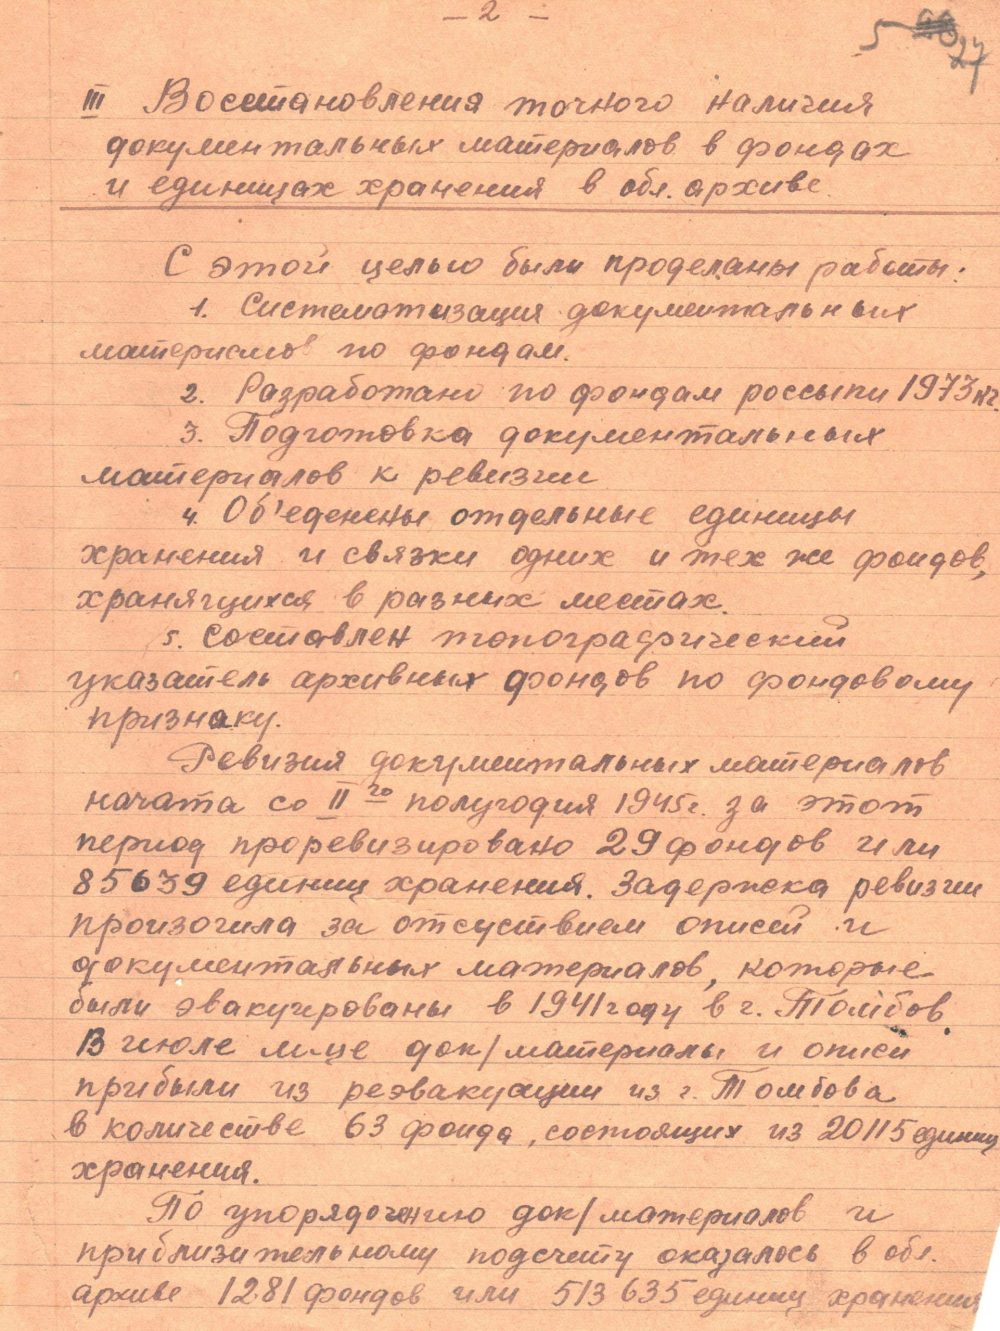 – 2 –
27
III Восстановления точного наличия
документальных материалов в фондах
и единицах хранения в обл. архиве.
С этой целью были проделаны работы:
1. Систематизация документальных
материалов по фондам.
2. Разработано по фондам россыпи 1973 кг
3. Подготовка документальных
материалов к ревизии
4. Об'еденены отдельные единицы
хранения и связки одних и тех же фондов,
хранящихся в разных местах.
5. Составлен топографический
указатель архивных фондов по фондовому
признаку.
Ревизия документальных материалов
начата со II го полугодия 1945 г. за этот
период проревизировано 29 фондов или
85639 единиц хранения. Задержка ревизии
произошла за отсуствием описей и
документальных материалов, которые
были эвакуированы в 1941 году в г. Томбов.
В июле м-це док/материалы и описи
прибыли из реэвакуации из г. Томбова
в количестве 63 фонда, состоящих из 20115 единиц
хранения.
По упорядочению док/материалов и
приблизительному подсчету оказалось в обл.
архиве 1281 фондов или 513635 единиц хранения